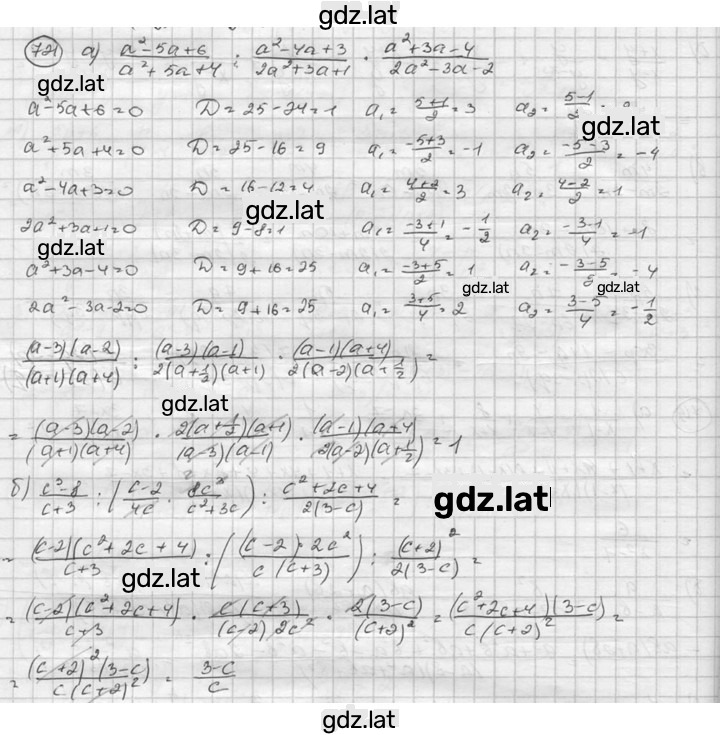 gdz.lat
721 а) (a²-5a+6)/(a²+5a+4) : (a²-4a+3)/(2a²+3a+1) · (a²+3a-4)/(2a²-3a-2)
gdz.lat
a²-5a+6=0 D=25-24=1 a₁= (5+1)/2 = 3 a₂= (5-1)/2
gdz.lat
a²+5a+4=0 D=25-16=9 a₁= (-5+3)/2 = -1 a₂= (-5-3)/2 = -4
a²-4a+3=0 D=16-12=4 a₁= (4+2)/2 = 3 a₂= (4-2)/2 = 1
gdz.lat
2a²+3a+1=0 D=9-8=1 a₁= (-3+1)/4 = -1/2 a₂= (-3-1)/4 = -1
gdz.lat
a²+3a-4=0 D=9+16=25 a₁= (-3+5)/2 = 1 a₂= (-3-5)/ = -4
gdz.lat gdz.lat
2a²-3a-2=0 D=9+16=25 a₁= (3+5)/4 = 2 a₂= (3-5)/4 = -1/2
(a-3)(a-2)/(a+1)(a+4) : (a-3)(a-1)/2(a+1/2)(a+1) · (a-1)(a+4)/2(a-2)(a+1/2) =
gdz.lat
= (a-3)(a-2)/(a+1)(a+4) · 2(a+1/2)(a+1)/(a-3)(a-1) · (a-1)(a+4)/2(a-2)(a+1/2) = 1
б) (c³-8)/(c+3) : ((c-2)/4c · 8c³/(c²+3c)) : (c²+2c+4)/2(3-c) =
gdz.lat
= (c-2)(c²+2c+4)/(c+3) : ((c-2)·2c²/c(c+3)) : (c+2)²/2(3-c) =
gdz.lat
= (c-2)(c²+2c+4)/(c+3) · c(c+3)/(c-2)2c² · 2(3-c)/(c+2)² = (c²+2c+4)(3-c)/c(c+2)² =
= (c+2)²(3-c)/c(c+2)² = (3-c)/c
gdz.lat